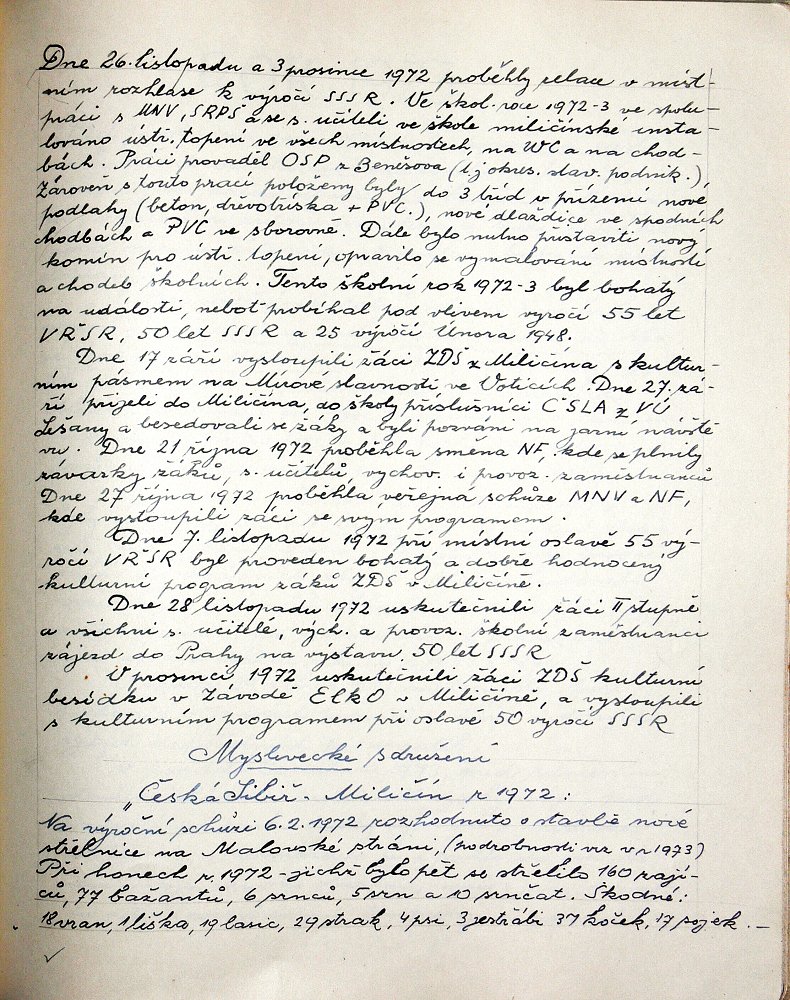 Dne 26. listopadu a 3 prosince 1972 proběhly relace v míst-
ním rozhlase k výročí SSSR. Ve škol. roce 1972-3 ve spolu-
práci s MNV, SRPŠ a se s. učiteli ve škole miličínské insta-
lováno ústř. topení ve všech místnostech, na WC a na chod-
bách. Práci prováděl OSP z Benešova (t.j. okres. stav. podnik.)
Zároveň s touto prací položeny byly do 3 tříd v přízemí nové
podlahy (beton, dřevotříska + PVC.), nové dlaždice ve spodních
chodbách a PVC ve sborovně. Dále bylo nutno přistaviti nový
komín pro ústř. topení, opravilo se vymalování místností
a chodeb školních. Tento školní rok 1972-3 byl bohatý
na události, neboť probíhal pod vlivem výročí 55 let
VŘSR, 50 let SSSR a 25 výročí Února 1948.
Dne 17 září vystoupili žáci ZDŠ z Miličína s kultur-
ním pásmem na Mírové slavnosti ve Voticích. Dne 27. zá-
ří přijeli do Miličína, do školy příslušníci ČSLA z VÚ
Lešany a besedovali se žáky a byli pozváni na jarní návště
vu. Dne 21 října 1972 proběhla směna NF, kde se plnily
závazky žáků, s. učitelů, vychov. i provoz. zaměstnanců
Dne 27 října 1972 proběhla veřejná schůze MNV a NF,
kde vystoupili žáci se svým programem.
Dne 7. listopadu 1972 při místní oslavě 55 vý-
ročí VŘSR byl proveden bohatý a dobře hodnocený
kulturní program žáků ZDŠ v Miličíně.
Dne 28 listopadu 1972 uskutečnili žáci II stupně
a všichni s. učitelé, vých. a provoz. školní zaměstnanci
zájezd do Prahy na výstavu 50 let SSSR
V prosinci 1972 uskutečnili žáci ZDŠ kulturní
besídku v Závodě ElkO v Miličíně, a vystoupili
s kulturním programem při oslavě 50 výročí SSSR
Myslivecké sdružení
"Česká Sibiř - Miličín r 1972:
Na výroční schůzi 6.2.1972 rozhodnuto o stavbě nové
střelnice na Malovské stráni, (podrobnosti viz v r 1973)
Při honech r. 1972 - jichž bylo pět se střelilo 160 zají-
ců, 77 bažantů, 6 srnců, 5 srn a 10 srnčat. Škodné:
18 vran, 1 liška, 19 lasic, 29 strak, 4 psi, 3 jestřábi 37 koček, 17 sojek. —